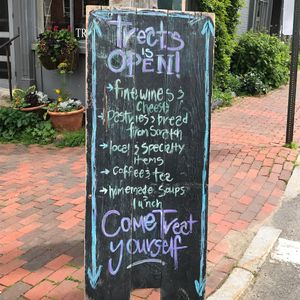 Treats
is
OPEN!
→ fine wines &
cheeses
→ Pastries & bread
from scratch
→ local & specialty
items
→ coffee & tea
→ homemade soups
& lunch
Come Treat
yourself
TR